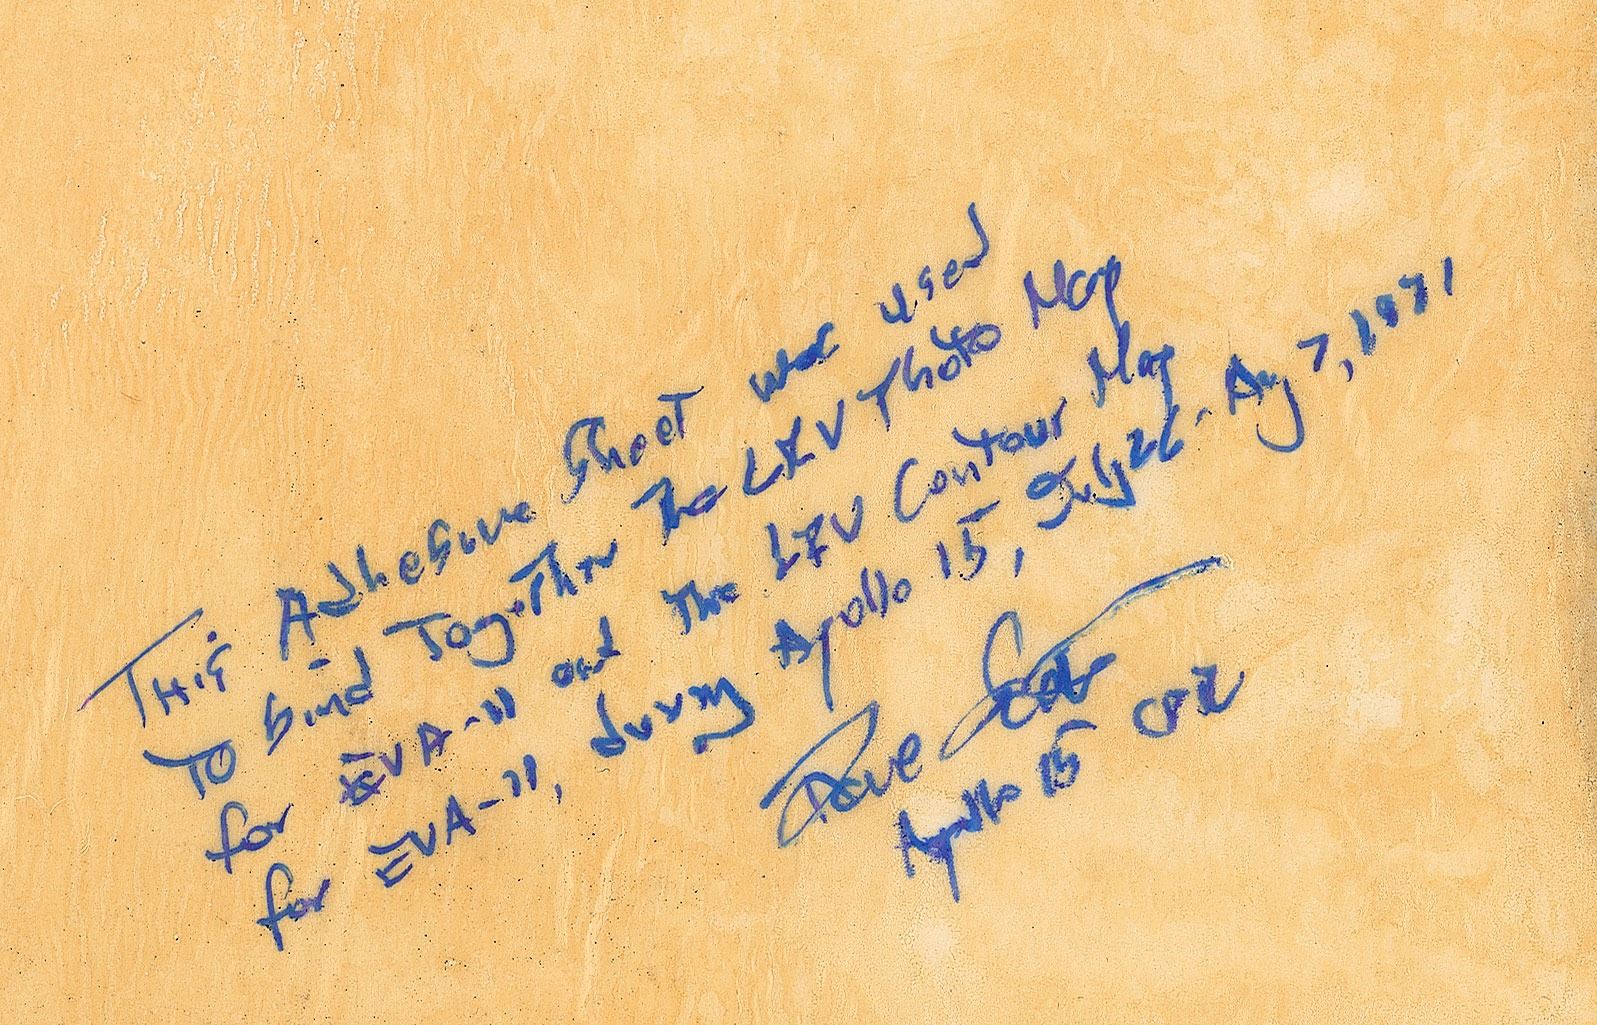 This Adhesive Sheet was used
To bind Together The LRV Photo Map
for EVA-II and The LRV Contour Map
for EVA-II, during Apollo 15, July 26 - Aug 7, 1971
Dave Scott
Apollo 15 CDR